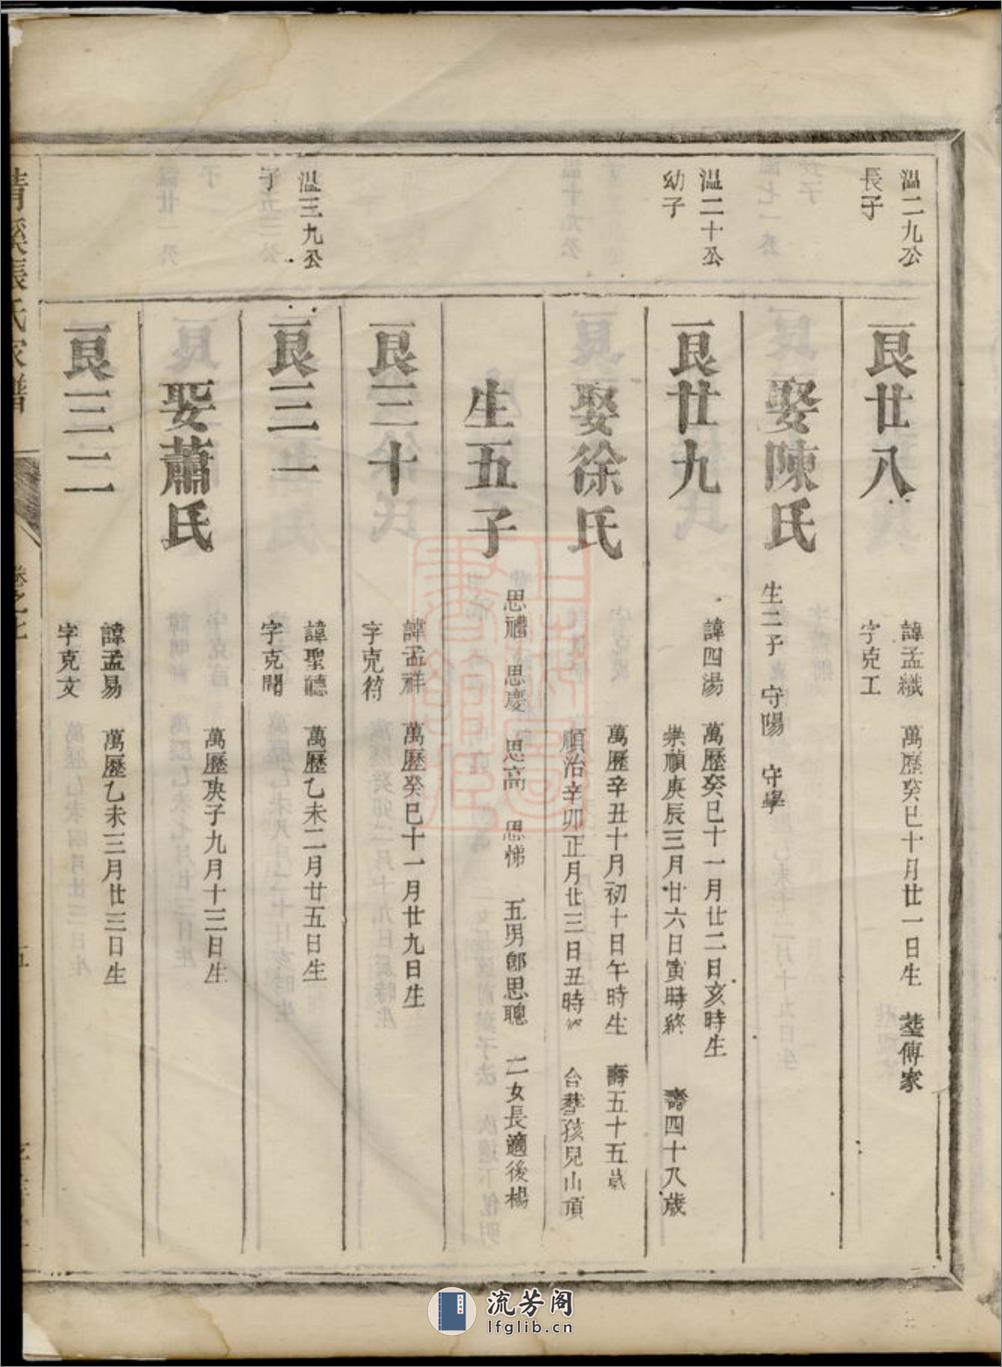 溫二九公
長子
艮廿八
諱孟織 萬曆癸巳十月廿一日生 塟傅家
字克工
娶陳氏
生二子 守陽 守學
溫二十公
幼子
艮廿九
諱四湯 萬曆癸巳十一月廿二日亥時生
崇禎庚辰三月廿六日寅時終 壽四十八歲
娶徐氏
萬曆辛丑十月初十日午時生 壽五十五歲
順治辛卯正月廿三日丑時 合塟孩兒山頂
生五子
思禮 思慶 思高 思悌 五男鄭思聰 二女長適後楊
艮三十
諱孟祥 萬曆癸巳十一月廿九日生
字克符
溫三九公
子
艮三一
諱聖聽 萬曆乙未二月廿五日生
字克聞
娶蕭氏
萬曆庚子九月十三日生
艮三二
諱孟易 萬曆乙未三月廿三日生
字克文
清溪張氏家譜
卷之七
流芳阁
lfglib.cn